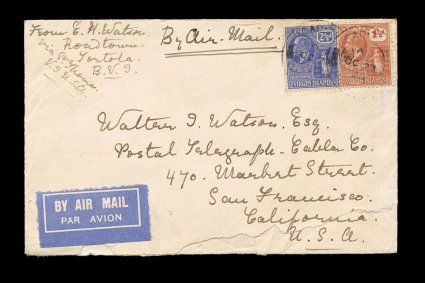 From E. H. Watson.
Roadtown.
Tortola.
B.V.I.
via St. Thomas.
V.I. U.S.A.
By Air-Mail.
2½d
VIRGIN ISLANDS
VIRGIN ISLANDS
Walter J. Watson. Esq.
Postal Telegraph-Cable Co.
470. Market Street.
San Francisco.
California.
U.S.A.
BY AIR MAIL
PAR AVION